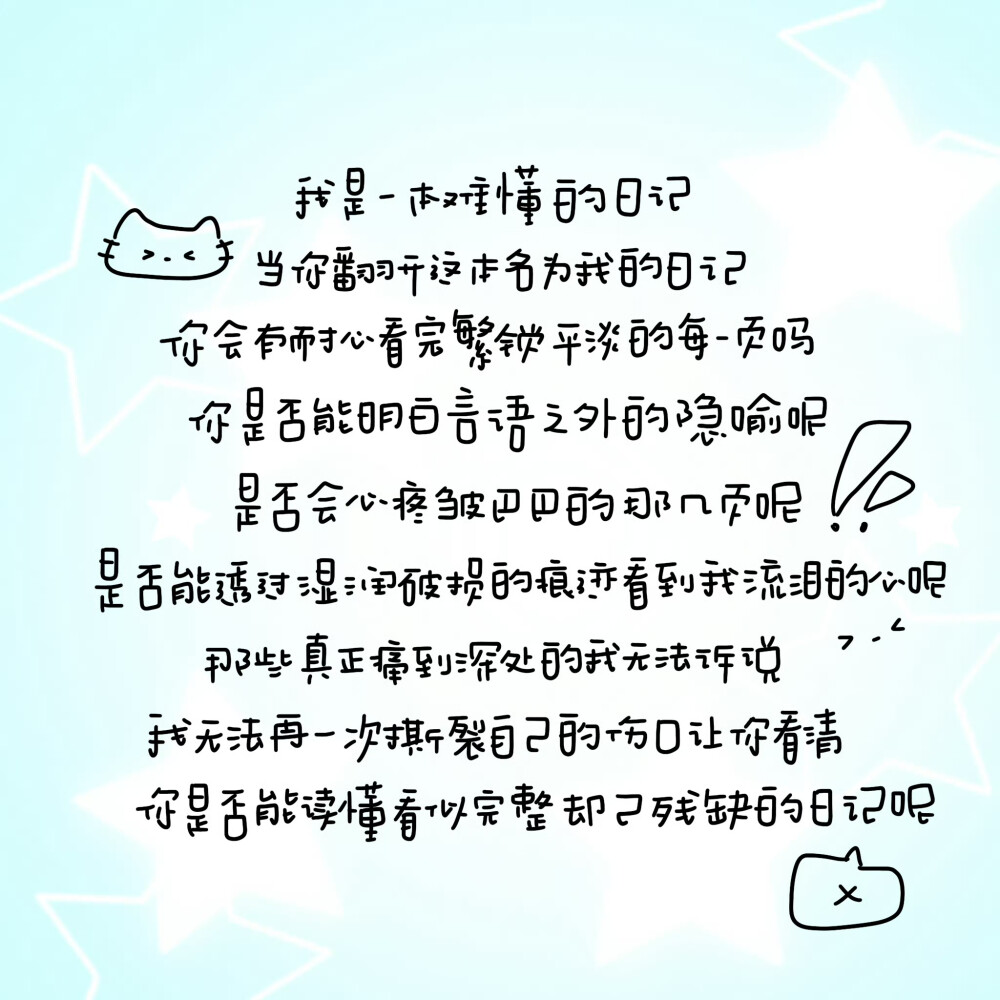 我是一本难懂的日记
当你翻开这本名为我的日记
你会有耐心看完繁锁平淡的每一页吗
你是否能明白言语之外的隐喻呢
是否会心疼皱巴巴的那几页呢
是否能透过湿润破损的痕迹看到我流泪的心呢
那些真正痛到深处的我无法诉说
我无法再一次撕裂自己的伤口让你看清
你是否能读懂看似完整却已残缺的日记呢